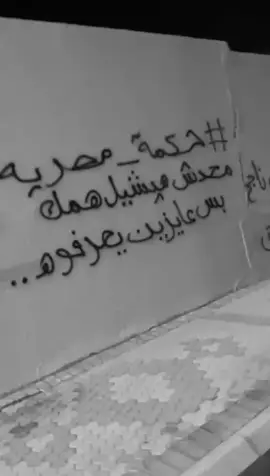 #حكمة_مصريه
محدش هيشيل همك
بس عايزين يعرفوه..